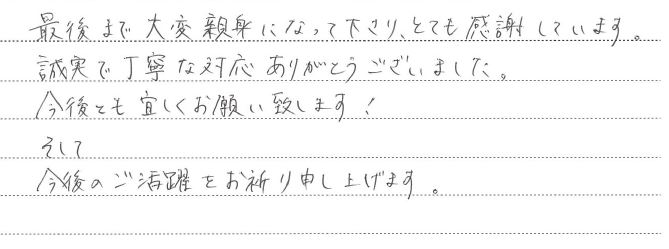 最後まで大変親身になって下さり、とても感謝しています。
誠実で丁寧な対応ありがとうございました。
今後とも宜しくお願い致します!
そして
今後のご活躍をお祈り申し上げます。